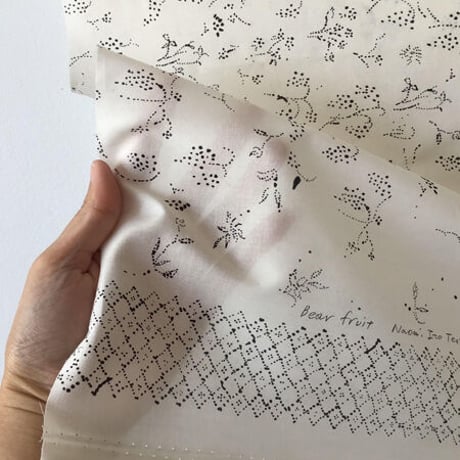 Bear fruit
Naomi Ito Te